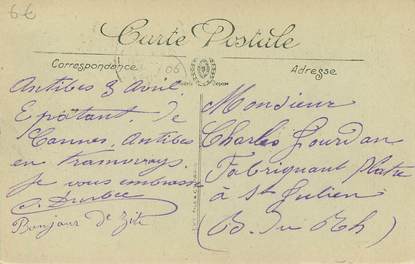 6€
Carte Postale
Correspondance
Adresse
Antibes 8 Avril.
Epatant. De
Cannes, Antibes
en tramways.
Je vous embrasse
Bonjour de Zite
Monsieur
Charles Jourdan
Fabriquant Platre
à St Julien
(B. du Rh)